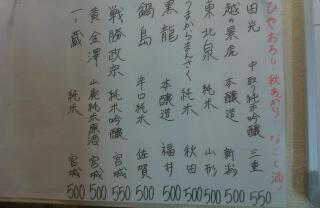 ひやおろし・秋あがり・なごし酒!
田光 中取り純米吟醸 三重 550
越の景虎 本醸造 新潟 500
東北泉 純米 山形 500
うまからまんさく 純米 秋田 500
黒龍 本醸造 福井 500
鍋島 辛口純米 佐賀 500
戦勝政宗 純米吟醸 宮城 550
黄金澤 山廃純米原酒 宮城 500
一ノ蔵 純米 宮城 500